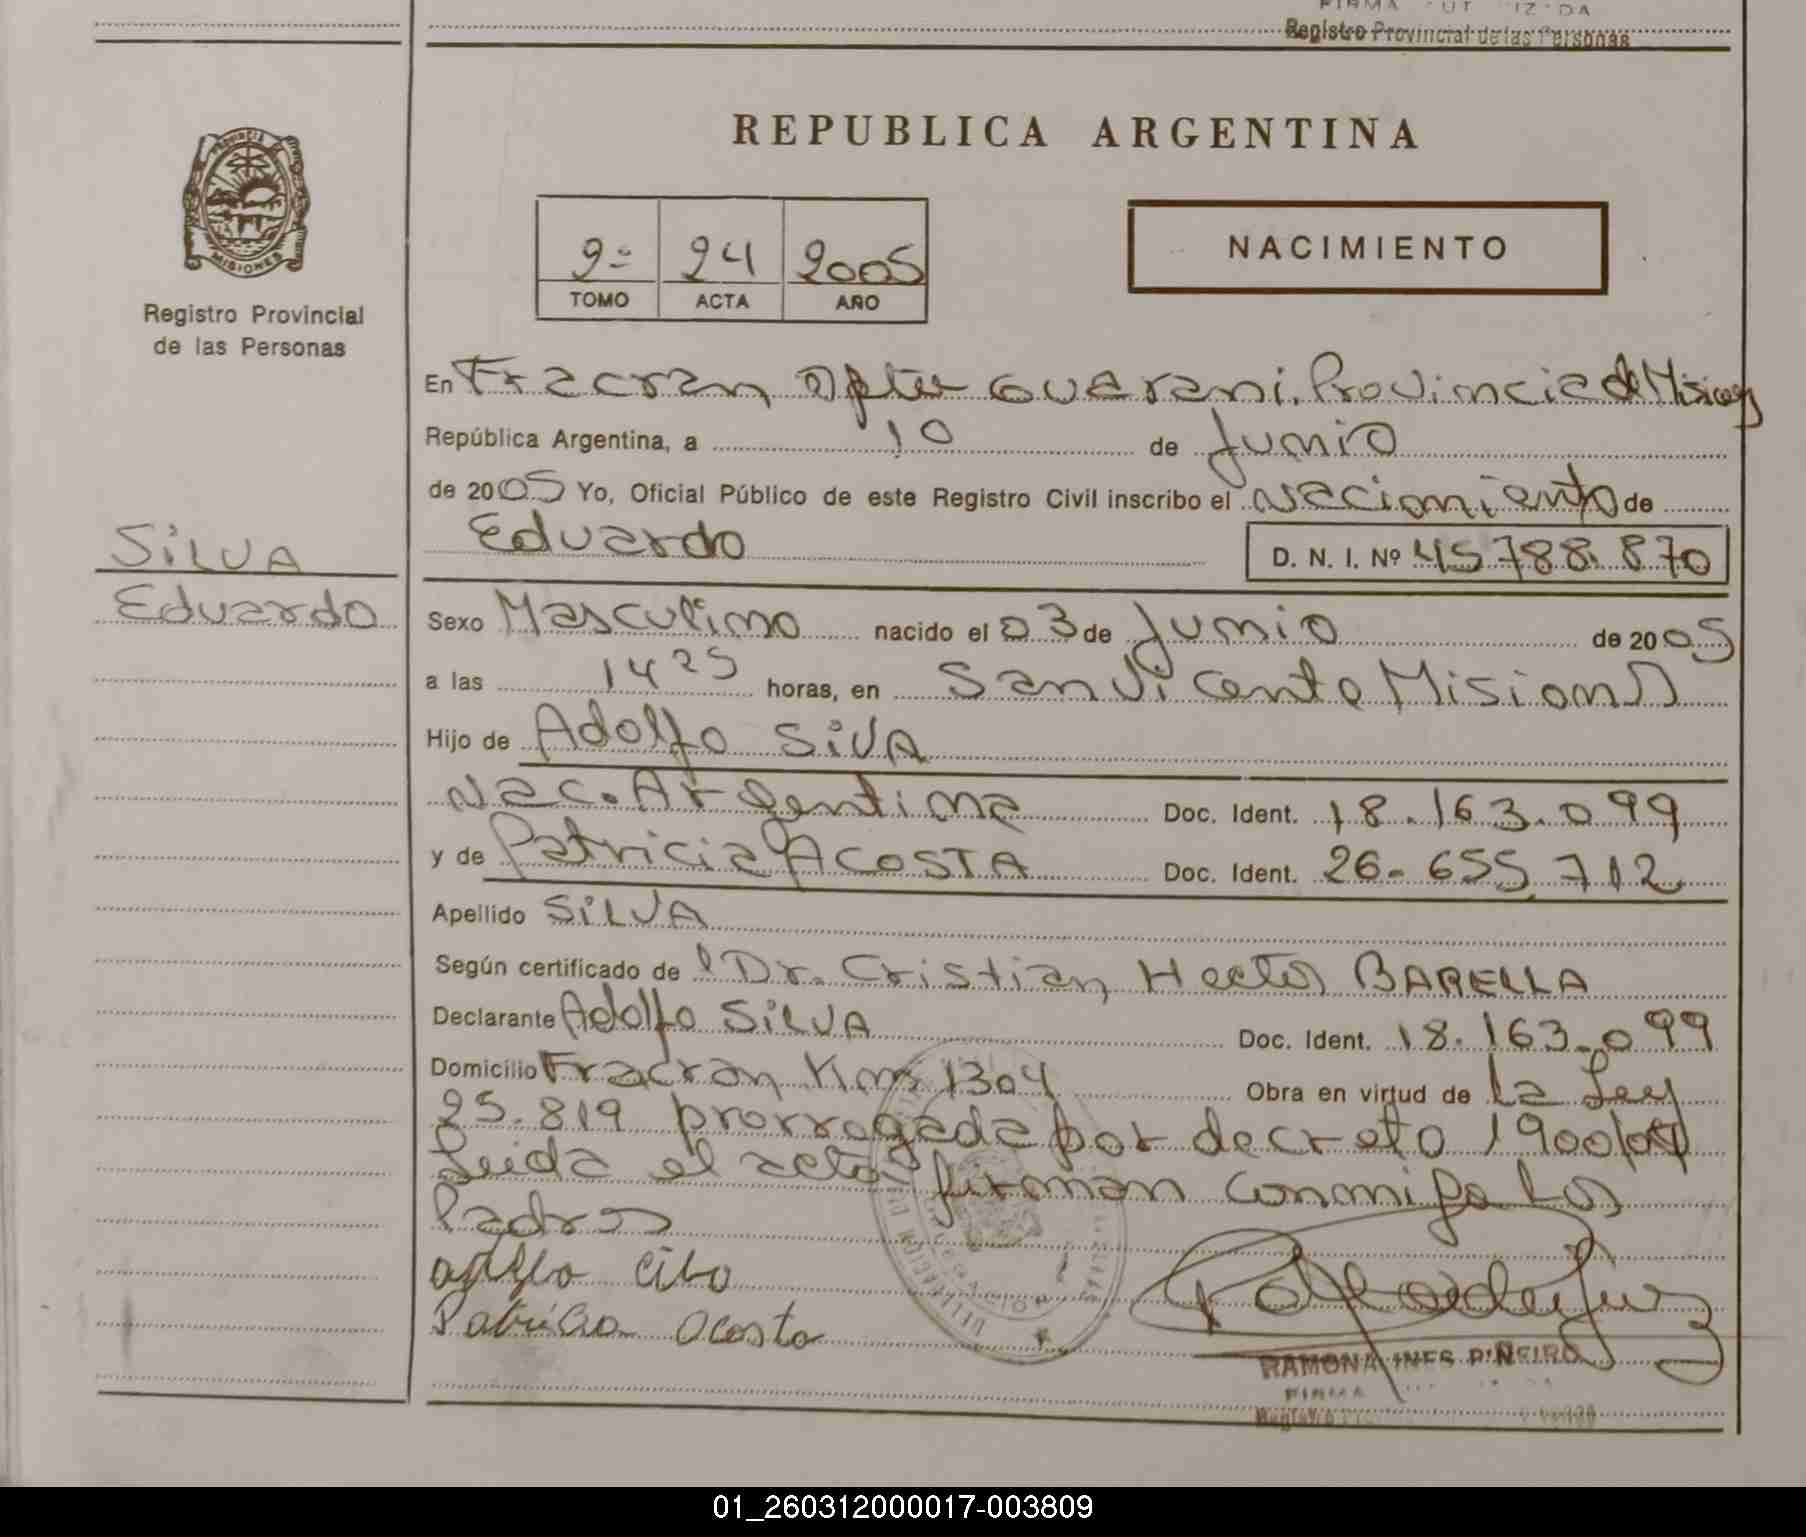 Registro Provincial de las Personas
REPUBLICA ARGENTINA
PROVINCIA
MISIONES
Registro Provincial
de las Personas
2= 24 2005
TOMO ACTA AÑO
NACIMIENTO
En Fracran Dpto Guarani. Provincia de Misiones
República Argentina, a 10 de Junio
de 2005 Yo, Oficial Público de este Registro Civil inscribo el Nacimiento de
Eduardo D. N. I. Nº 45788.870
SiLVA
Eduardo
Sexo Masculino nacido el 03 de Junio de 2005
a las 14 25 horas, en San Vicente Misiones
Hijo de Adolfo SiVA
Nac. Argentina Doc. Ident. 18.163.099
y de Patricia ACOSTA Doc. Ident. 26.655.712
Apellido SiLVA
Según certificado de Dr. Cristian Hector BARELLA
Declarante Adolfo SiLVA Doc. Ident. 18.163.099
Domicilio Fracran Km 1304 Obra en virtud de la Ley
25.819 prorrogada por decreto 1900/04
Leida el acta firman conmigo los
Padres
Cibo
Patricia Acosta
RAMONA INES PIÑEIRO
FIRMA
01_260312000017-003809